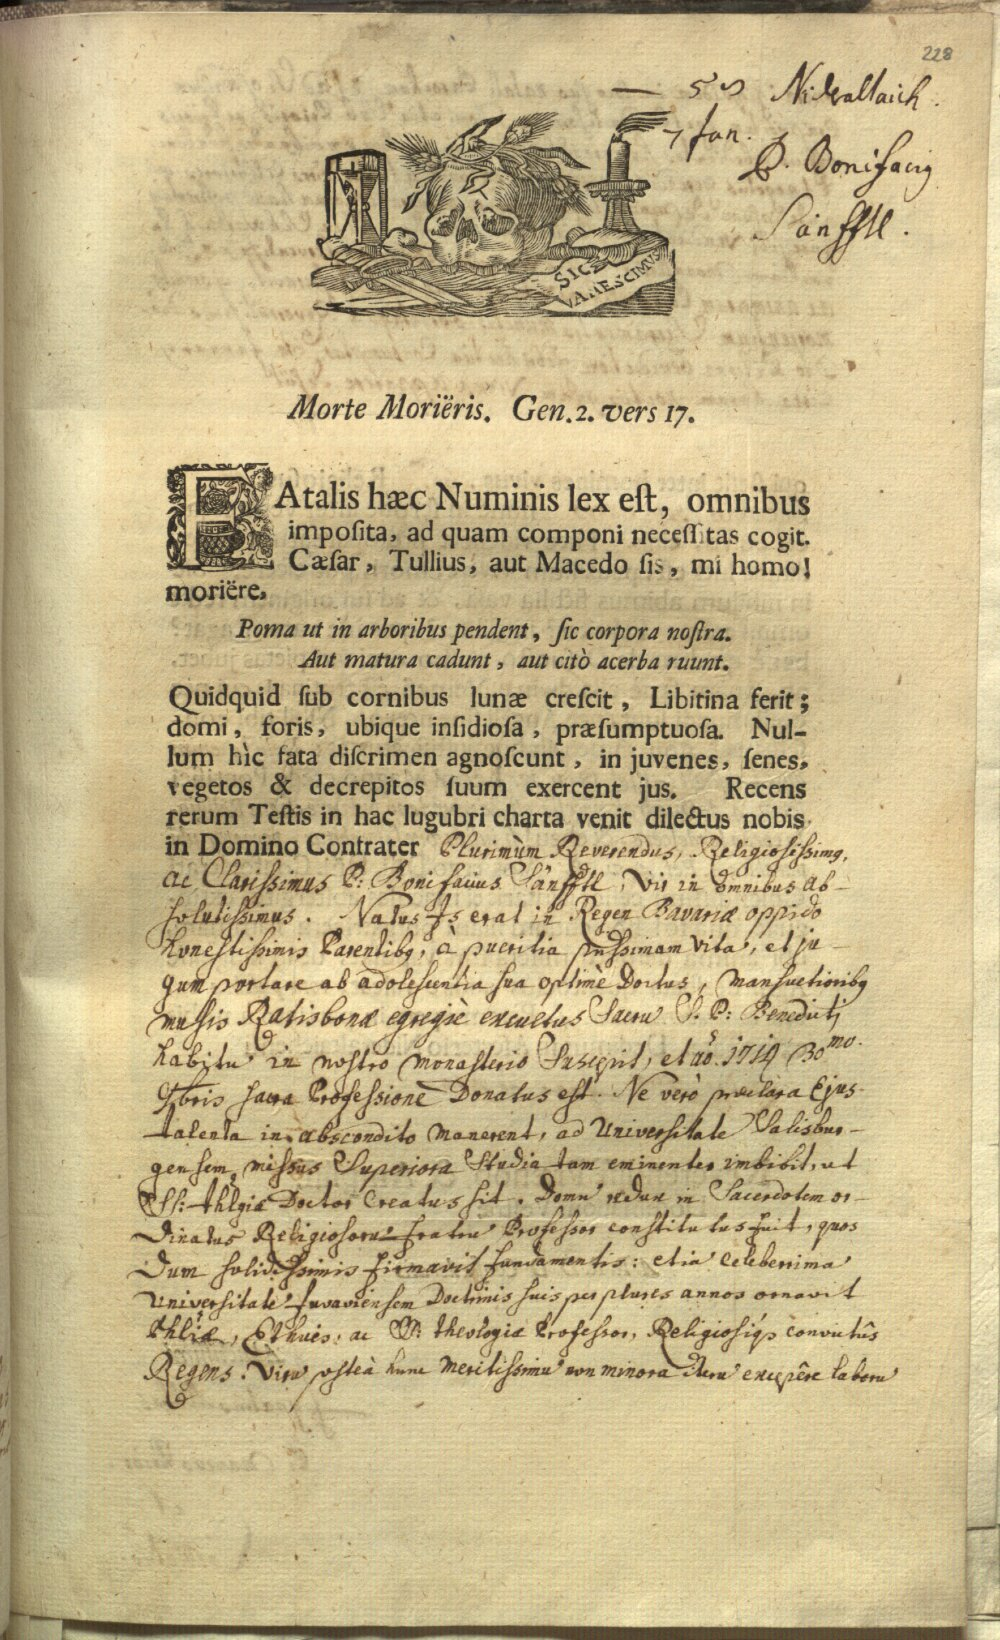 228
— 58 Nideraltaich.
7 Jan.
P. Bonifacig
Sänfftl.
SIC
VANESCIMUS
Morte Moriëris. Gen. 2. vers 17.
FAtalis hæc Numinis lex eſt, omnibus
impoſita, ad quam componi neceſſitas cogit.
Cæſar, Tullius, aut Macedo ſis, mi homo!
moriëre.
Poma ut in arboribus pendent, ſic corpora noſtra.
Aut matura cadunt, aut citò acerba ruunt.
Quidquid ſub cornibus lunæ creſcit, Libitina ferit;
domi, foris, ubique inſidioſa, præſumptuoſa. Nul-
lum hìc fata diſcrimen agnoſcunt, in juvenes, ſenes,
vegetos & decrepitos ſuum exercent jus. Recens
rerum Teſtis in hac lugubri charta venit dilectus nobis
in Domino Confrater Plurimùm Reverendus, Religiosissimg,
ac Clarissimus P: Bonifacius Sänfftl, Vir in omnibus ab-
solutissimus. Natus Is erat in Regen Bavariæ oppido
honestissimis Parentibg, à pueritia piissimam vita, et ju-
gum portare ab adolescentia sua optimè Doctus, mansuetioribg
musis Ratisbonæ egregiè excultus Sacru S. P: Benedicti
habitu in nostro monasterio Suscepit, et aõ. 1714 30mo.
9bris sacra Professione Donatus est. Ne verò præclara Ejus
talenta in abscondito manerent, ad Universitate Salisbur-
gensem missus Superiora Studia tam eminenter imbibit, ut
SS: thlgiæ Doctor Creatus sit. Domu redux in Sacerdotem or-
dinatus Religiosoru fratru Professor constitutus fuit, quos
Dum solidissimis firmavit fundamentis: etia celeberrima
Universitate Juvaviensem Doctrinis suis per plures annos ornavit
Phliæ, Ethices, ac SS: theologiæ Professor, Religiosiqs convictûs
Regens. Viru posteà hunc meritissimu non minora Ateru excepêre laboru